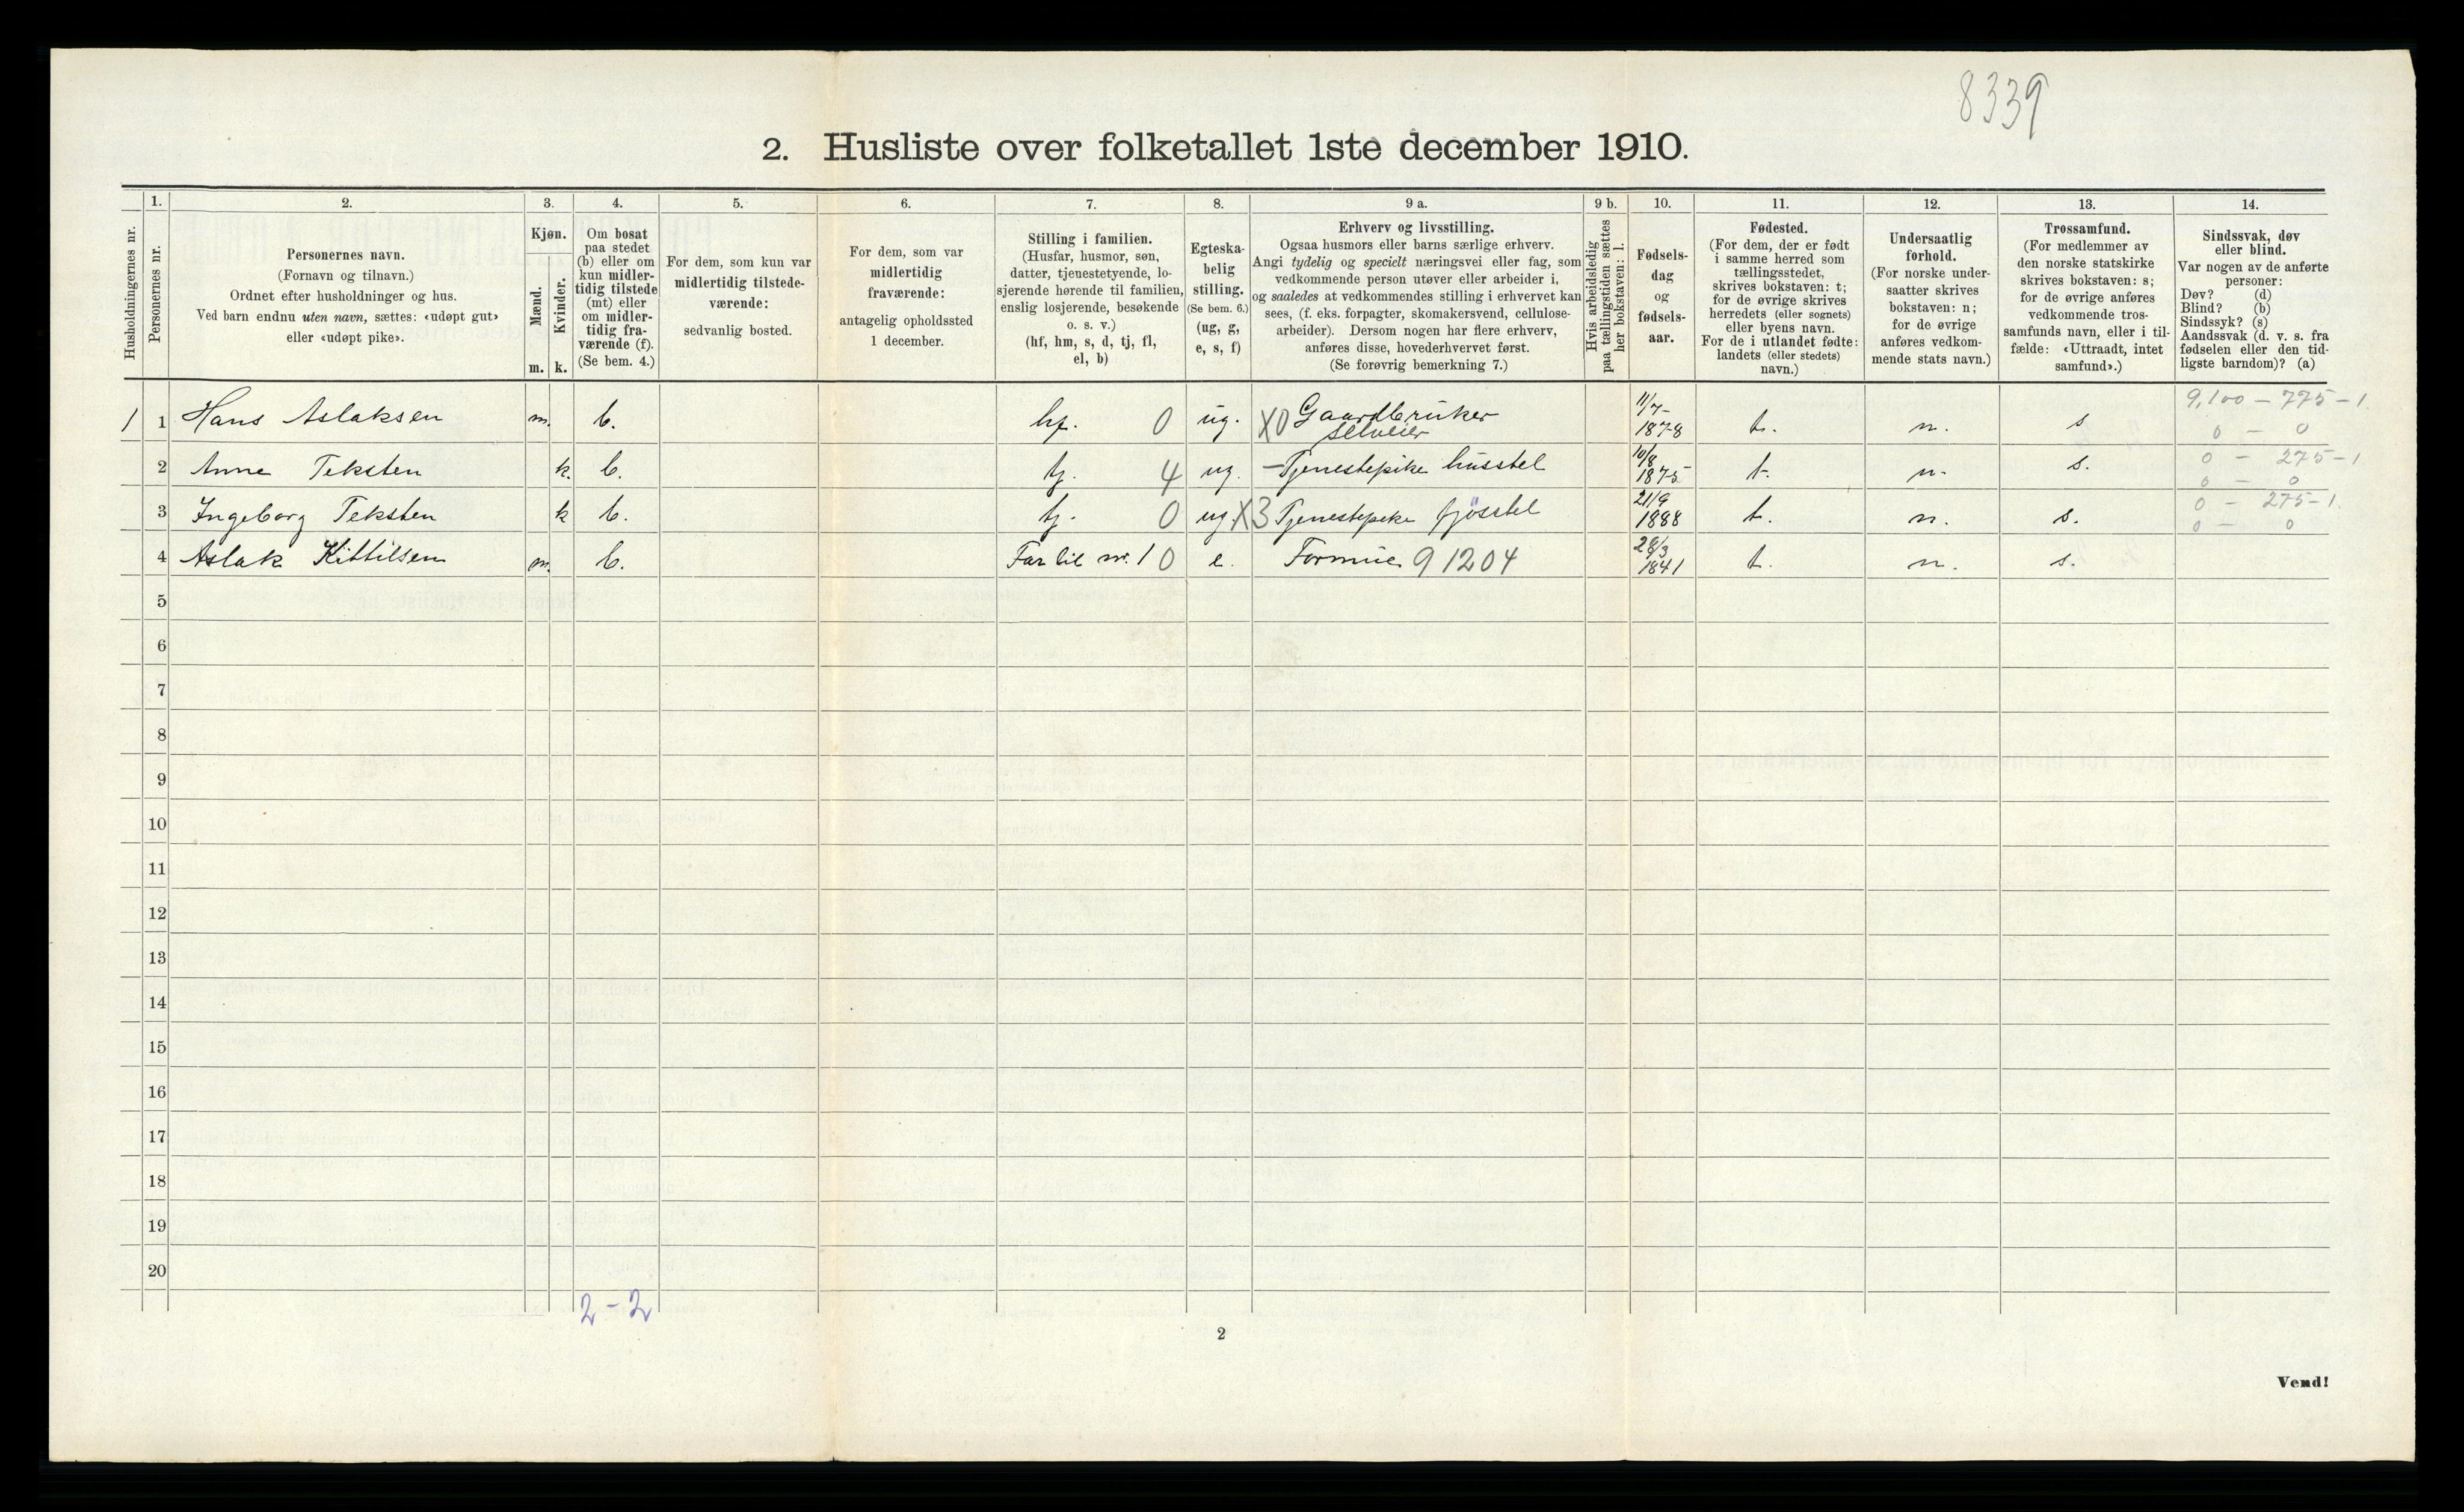 8339
2. Husliste over folketallet 1ste december 1910.
1. 2. 3. 4. 5. 6. 7. 8. 9 a. 9 b. 10. 11. 12. 13. 14.
Husholdningernes nr.
Personernes nr.
Personernes navn.
(Fornavn og tilnavn.)
Ordnet efter husholdninger og hus.
Ved barn endnu uten navn, sættes: «udøpt gut»
eller «udøpt pike».
Kjøn.
Mænd.
Kvinder.
m. k.
Om bosat
paa stedet
(b) eller om
kun midler-
tidig tilstede
(mt) eller
om midler-
tidig fra-
værende (f).
(Se bem. 4.)
For dem, som kun var
midlertidig tilstede-
værende:
sedvanlig bosted.
For dem, som var
midlertidig
fraværende:
antagelig opholdssted
1 december.
Stilling i familien.
(Husfar, husmor, søn,
datter, tjenestetyende, lo-
sjerende hørende til familien,
enslig losjerende, besøkende
o. s. v.)
(hf, hm, s, d, tj, fl,
el, b)
Egteska-
belig
stilling.
(Se bem. 6.)
(ug, g,
e, s, f)
Erhverv og livsstilling.
Ogsaa husmors eller barns særlige erhverv.
Angi tydelig og specielt næringsvei eller fag, som
vedkommende person utøver eller arbeider i,
og saaledes at vedkommendes stilling i erhvervet kan
sees, (f. eks. forpagter, skomakersvend, cellulose-
arbeider). Dersom nogen har flere erhverv,
anføres disse, hovederhvervet først.
(Se forøvrig bemerkning 7.)
Hvis arbeidsledig
paa tællingstiden sættes
her bokstaven: l.
Fødsels-
dag
og
fødsels-
aar.
Fødested.
(For dem, der er født
i samme herred som
tællingsstedet,
skrives bokstaven: t;
for de øvrige skrives
herredets (eller sognets)
eller byens navn.
For de i utlandet fødte:
landets (eller stedets)
navn.)
Undersaatlig
forhold.
(For norske under-
saatter skrives
bokstaven: n;
for de øvrige
anføres vedkom-
mende stats navn.)
Trossamfund.
(For medlemmer av
den norske statskirke
skrives bokstaven: s;
for de øvrige anføres
vedkommende tros-
samfunds navn, eller i til-
fælde: «Uttraadt, intet
samfund».)
Sindssvak, døv
eller blind.
Var nogen av de anførte
personer:
Døv? (d)
Blind? (b)
Sindssyk? (s)
Aandssvak (d. v. s. fra
fødselen eller den tid-
ligste barndom)? (a)
9,100 – 775 – 1.
1 1 Hans Aslaksen m. b. hf. 0 ug. X0 Gaardbruker 11/7- 1878 t. n. s
selveier 0 – 0
2 Anne Teksten k. b. tj. 4 ug. – Tjenestepike husstel 10/8 1875 t. n. s. 0 – 275 – 1
0 – 0
3 Ingeborg Teksten k b. tj. 0 ug. X3 Tjenestepike fjösstel 21/9 1888 t. n. s. 0 – 275 – 1.
0 – 0
4 Aslak Kittilsen m. b. Far til nr. 1 0 e. Formue 91204 28/3 1841 t. n. s.
5
6
7
8
9
10
11
12
13
14
15
16
17
18
19
20
2 – 2
2
Vend!